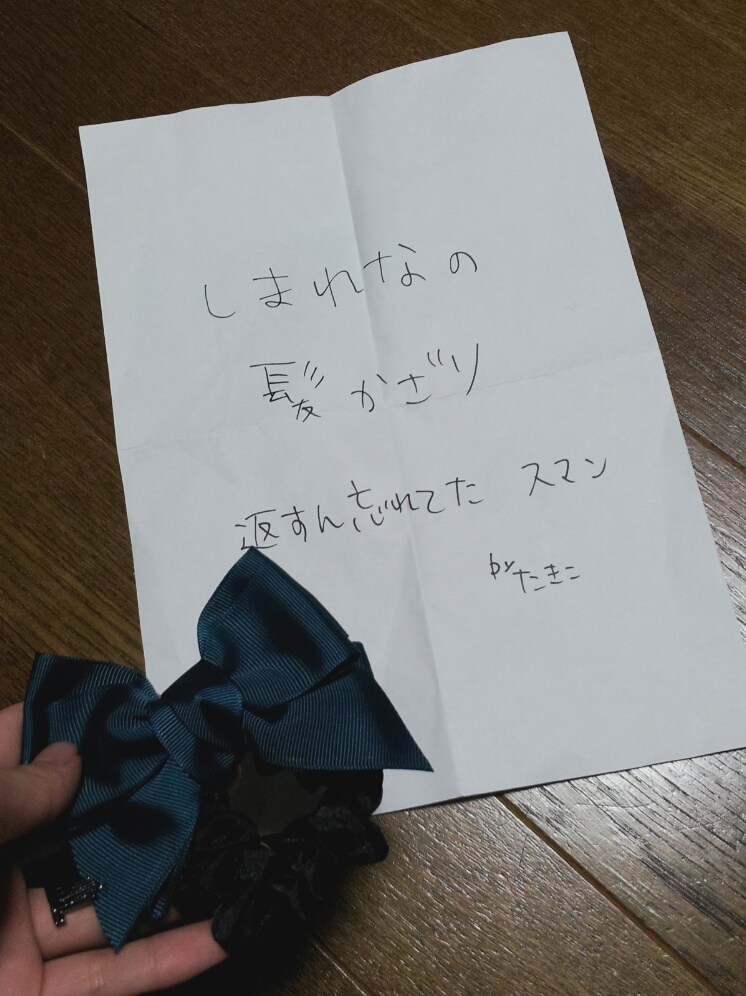 しまれなの
髪かざり
返すん忘れてた スマン
byたきこ